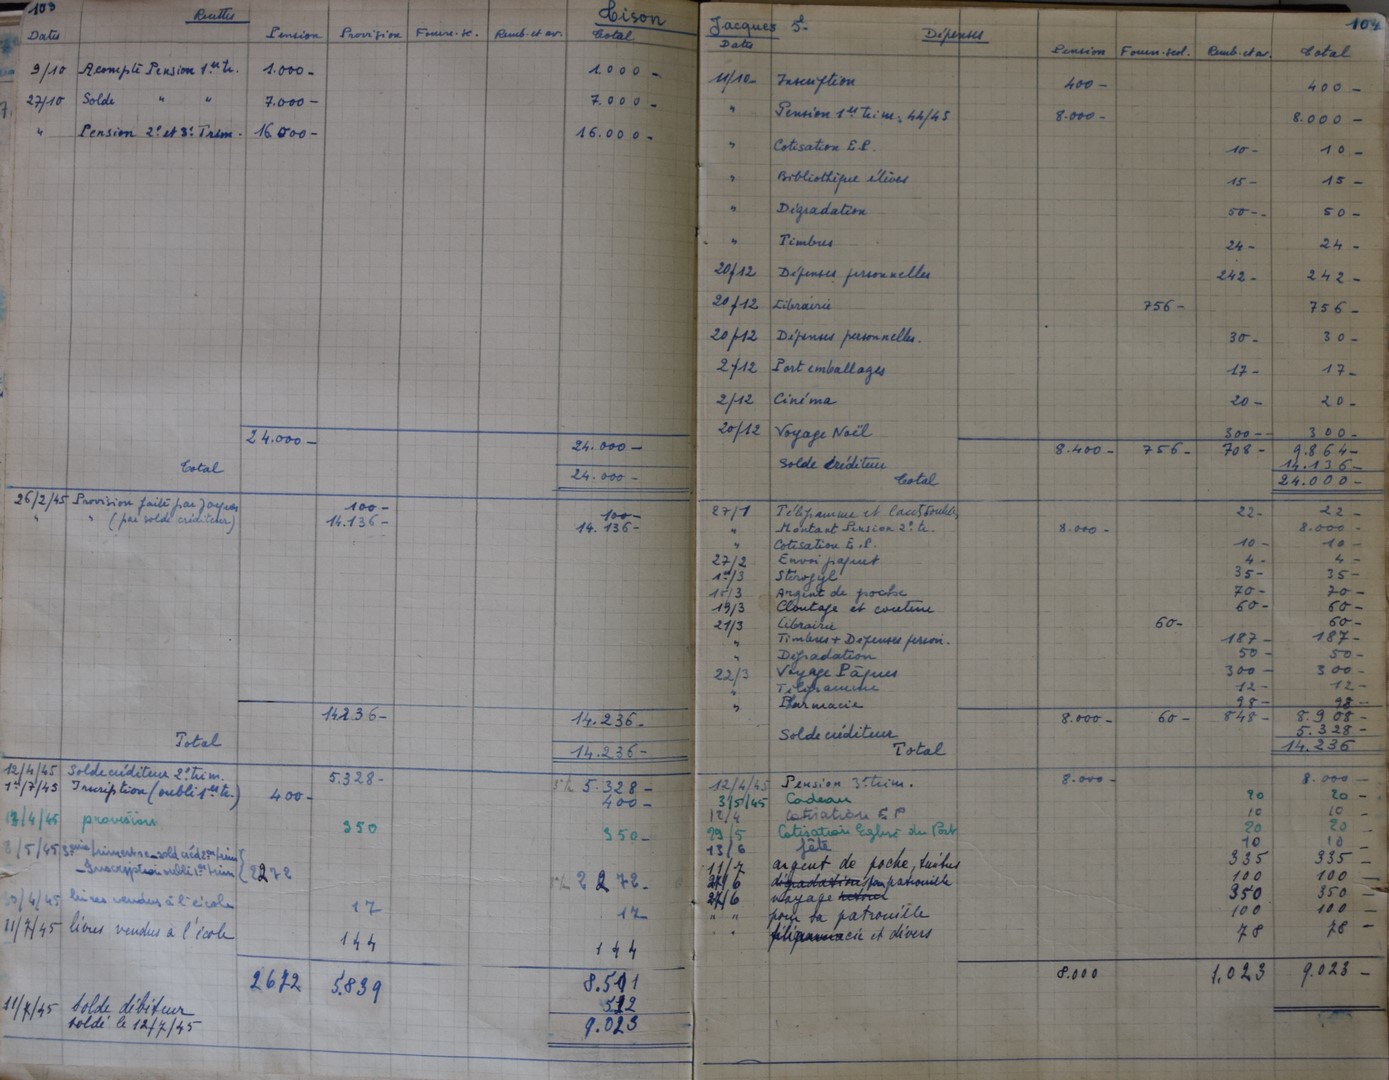 103 Recettes Tison
Dates Pension Provision Fourn. sc. Remb. et av. Total
9/10 Acompte Pension 1er tr. 1.000- 1.000-
27/10 Solde " " 7.000- 7.000-
" Pension 2e et 3e Trim. 16.000- 16.000-
24.000- 24.000-
Total 24.000-
26/2/45 Provision faite par Jacques 100- 100-
" " (par solde créditeur) 14.136- 14.136-
14.236- 14.236-
Total 14.236-
12/4/45 Solde créditeur 2e trim. 5.328- 5.328-
1er/7/45 Inscription (oubli 1er tr.) 400- 400-
provision 350 350-
/5/45
Inscription oubli 1er trim 2272 2272-
30/4/45 livres vendus à l'école 17 17
11/7/45 livres vendus à l'école 144 144
2672 5.839 8.511
512
11/7/45 Solde débiteur 9.023
soldé le 12/7/45
Jacques 5e Dépenses 104
Dates Pension Fourn. scol. Remb. et av. Total
11/10 Inscription 400- 400-
" Pension 1er trim. 44/45 8.000- 8.000-
" Cotisation E.P. 10- 10-
" Bibliothèque élèves 15- 15-
" Dégradation 50- 50-
" Timbres 24- 24-
20/12 Dépenses personnelles 242- 242-
20/12 Librairie 756- 756-
20/12 Dépenses personnelles. 30- 30-
2/12 Port emballages 17- 17-
2/12 Cinéma 20- 20-
20/12 Voyage Noël 300- 300-
8.400- 756- 708- 9.864-
Solde créditeur 14.136-
Total 24.000-
27/1 Télégramme et 22- 22-
" Montant Pension 2e tr. 8.000- 8.000-
" Cotisation E.P. 10- 10-
27/2 Envoi paquet 4- 4-
1er/3 Stérogyl 35- 35-
15/3 Argent de poche 70- 70-
19/3 Cloutage et couture 60- 60-
21/3 Librairie 60- 60-
" Timbres + Dépenses person. 187- 187-
" Dégradation 50- 50-
22/3 Voyage Pâques 300- 300-
" Télégramme 12- 12-
" Pharmacie 98- 98-
8.000- 60- 848- 8.908-
Solde créditeur 5.328-
Total 14.236
12/4/45 Pension 3e trim. 8.000- 8.000-
3/5/45 Cadeau 20 20-
12/4 Cotisation E P 10 10-
29/5 Cotisation Eglise du Port 20 20-
13/6 fête 10 10-
11/7 argent de poche, timbres 335 335-
27/6 dégradations pour patrouille 100 100-
27/6 voyage retour 350 350-
" " pour sa patrouille 100 100-
" " pharmacie et divers 78 78-
8.000 1.023 9.023-